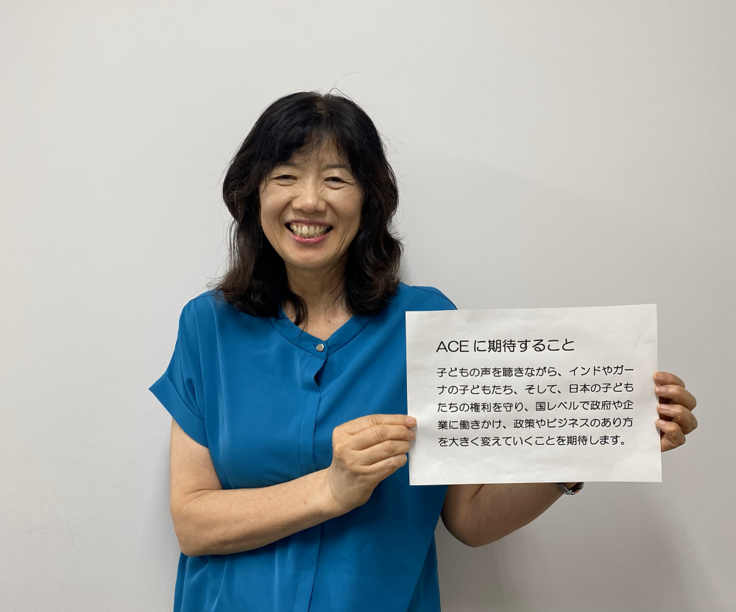 ACE に期待すること
子どもの声を聴きながら、インドやガー
ナの子どもたち、そして、日本の子ども
たちの権利を守り、国レベルで政府や企
業に働きかけ、政策やビジネスのあり方
を大きく変えていくことを期待します。